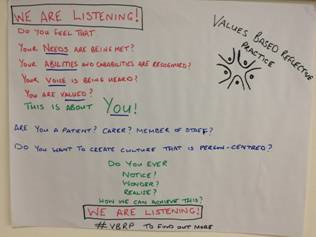 WE ARE LISTENING!
DO YOU FEEL THAT
YOUR NEEDS ARE BEING MET?
YOUR ABILITIES AND CAPABILITIES ARE RECOGNISED?
YOUR VOICE IS BEING HEARD?
YOU ARE VALUED?
THIS IS ABOUT YOU!
VALUES BASED REFLECTIVE
PRACTICE
ARE YOU A PATIENT? CARER? MEMBER OF STAFF?
DO YOU WANT TO CREATE CULTURE THAT IS PERSON-CENTRED?
DO YOU EVER
NOTICE?
WONDER?
REALISE?
HOW WE CAN ACHIEVE THIS?
WE ARE LISTENING!
#VBRP TO FIND OUT MORE